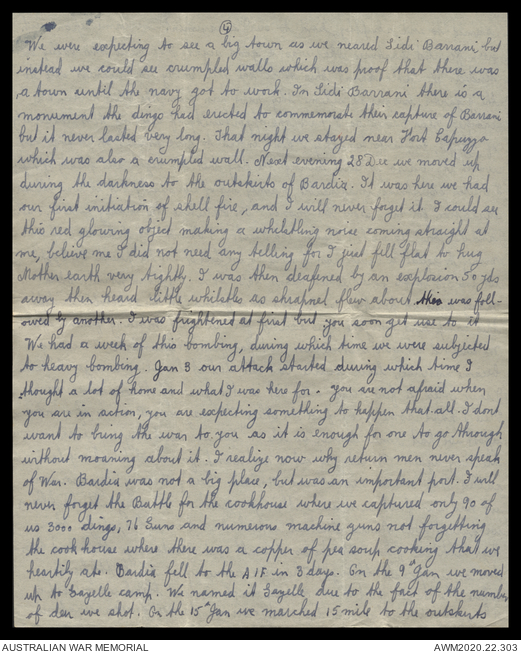 4
We were expecting to see a big town as we neared Sidi Barrani but
instead we could see crumpled walls which was proof that there was
a town until the navy got to work. In Sidi Barrani there is a
monument the dingo had erected to commemorate their capture of Barrani
but it never lasted very long. That night we stayed near Fort Capuzzo
which was also a crumpled wall. Next evening 28 Dec we moved up
during the darkness to the outskirts of Bardia. It was here we had
our first initiation of shell fire, and I will never forget it. I could see
this red glowing object making a whistling noise coming straight at
me, believe me I did not need any telling for I just fell flat to hug
Mother earth very tightly. I was then deafened by an explosion 50 yds
away then heard little whilstles as shrapnel flew about this was foll-
owed by another. I was frightened at first but you soon get use to it
We had a week of this bombing, during which time we were subjected
to heavy bombing. Jan 3 our attack started during which time I
thought a lot of home and what I was here for. You are not afraid when
you are in action, you are expecting something to happen that all. I dont
want to bring the war to you as it is enough for one to go through
without moaning about it. I realize now why return men never speak
of War. Bardia was not a big place, but was an important port. I will
never forget the Battle for the cookhouse where we captured only 90 of
us 3000 dingo, 76 Guns and numerous machine guns not forgetting
the cook house where there was a copper of pea soup cooking that we
heartily ate. Bardia fell to the AIF in 3 days. On the 9th Jan we moved
up to Gazelle camp. We named it Gazelle due to the fact of the number
of deer we shot. On the 15th Jan we marched 15 mile to the outskirts
AUSTRALIAN WAR MEMORIAL
AWM2020.22.303